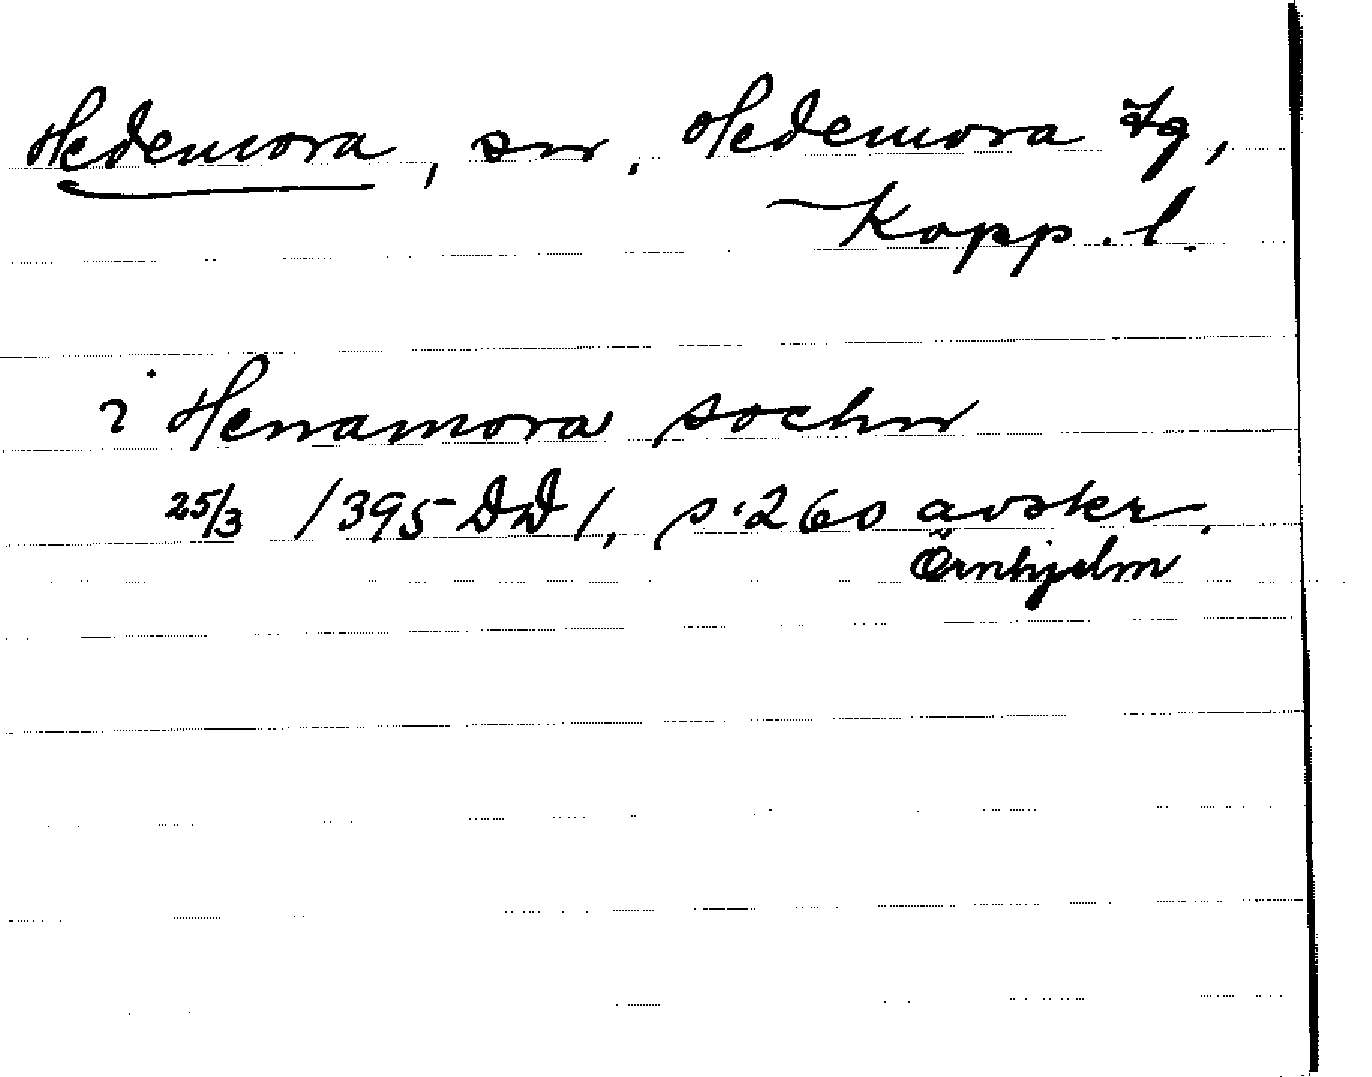 Hedemora, sn, Hedemora tg,
Kopp. l.
i Henamora sochn
25/3 1395 DD 1, s. 260 avskr.
Örnhjelm